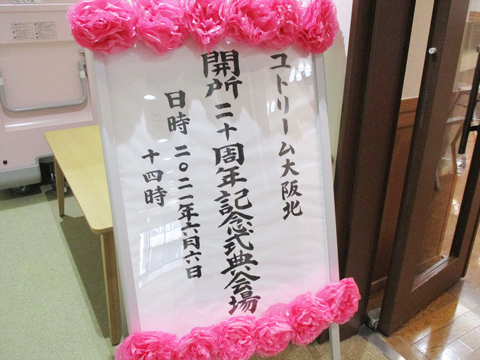 ユトリーム大阪北
開所二十周年記念式典会場
日時 二〇二一年六月六日
十四時